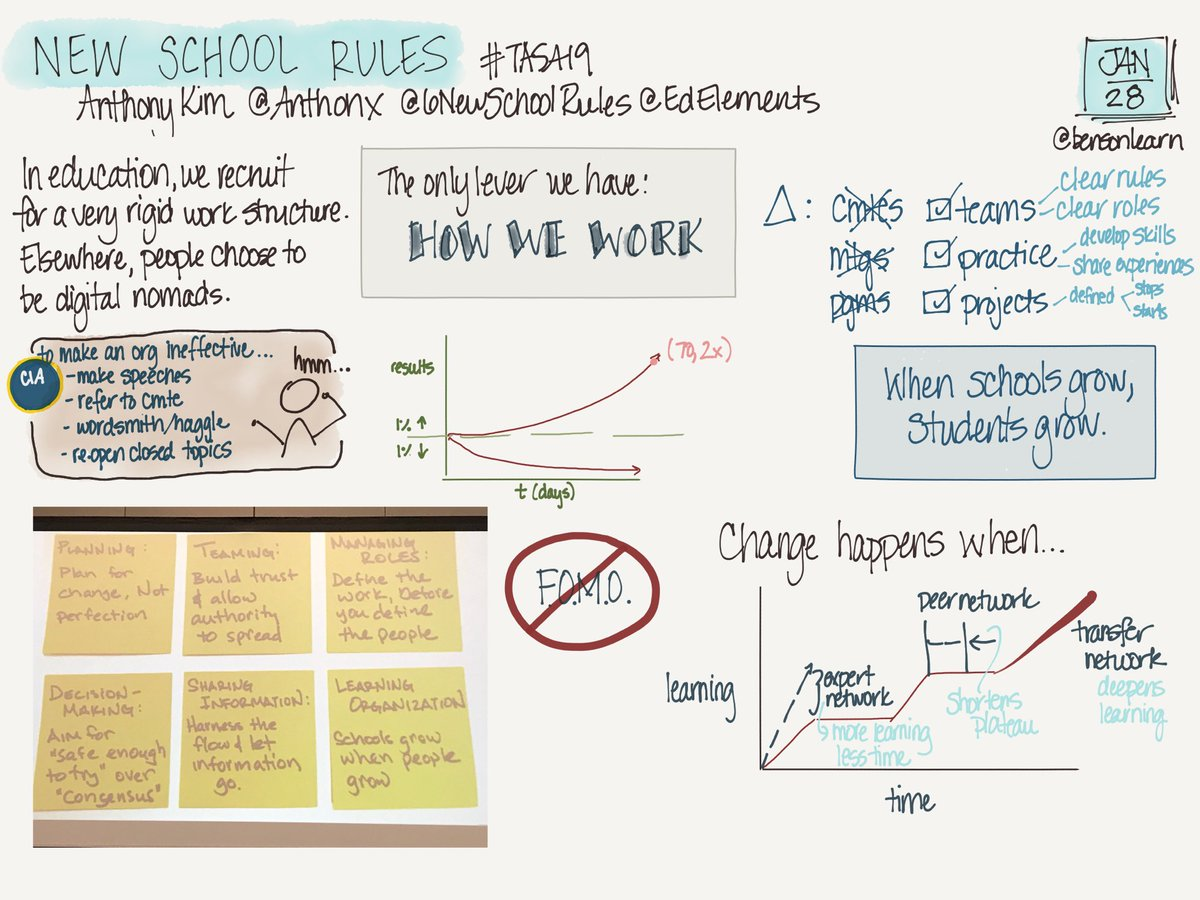 NEW SCHOOL RULES #TASA19
Anthony Kim @Anthonx @6NewSchoolRules @EdElements
JAN
28
@bensonlearn
In education, we recruit
for a very rigid work structure.
Elsewhere, people choose to
be digital nomads.
The only lever we have:
HOW WE WORK
Δ: cmtes
mtgs
pgms
teams
clear rules
clear roles
practice
develop skills
share experiences
projects
defined
stops
starts
CIA
to make an org ineffective...
- make speeches
- refer to cmte
- wordsmith/haggle
- re-open closed topics
hmm...
results
1% ↑
1% ↓
t (days)
(70, 2x)
When schools grow,
Students grow.
PLANNING:
Plan for
change, Not
perfection
TEAMING:
Build trust
& allow
authority
to spread
MANAGING
ROLES:
Define the
work, before
you define
the people
DECISION-
MAKING:
AIM for
"safe enough
to try" over
"Consensus"
SHARING
INFORMATION:
Harness the
flow & let
information
go.
LEARNING
ORGANIZATION
Schools grow
when people
grow
F.O.M.O.
Change happens when...
learning
time
expert
network
more learning
less time
peer network
shortens
plateau
transfer
network
deepens
learning